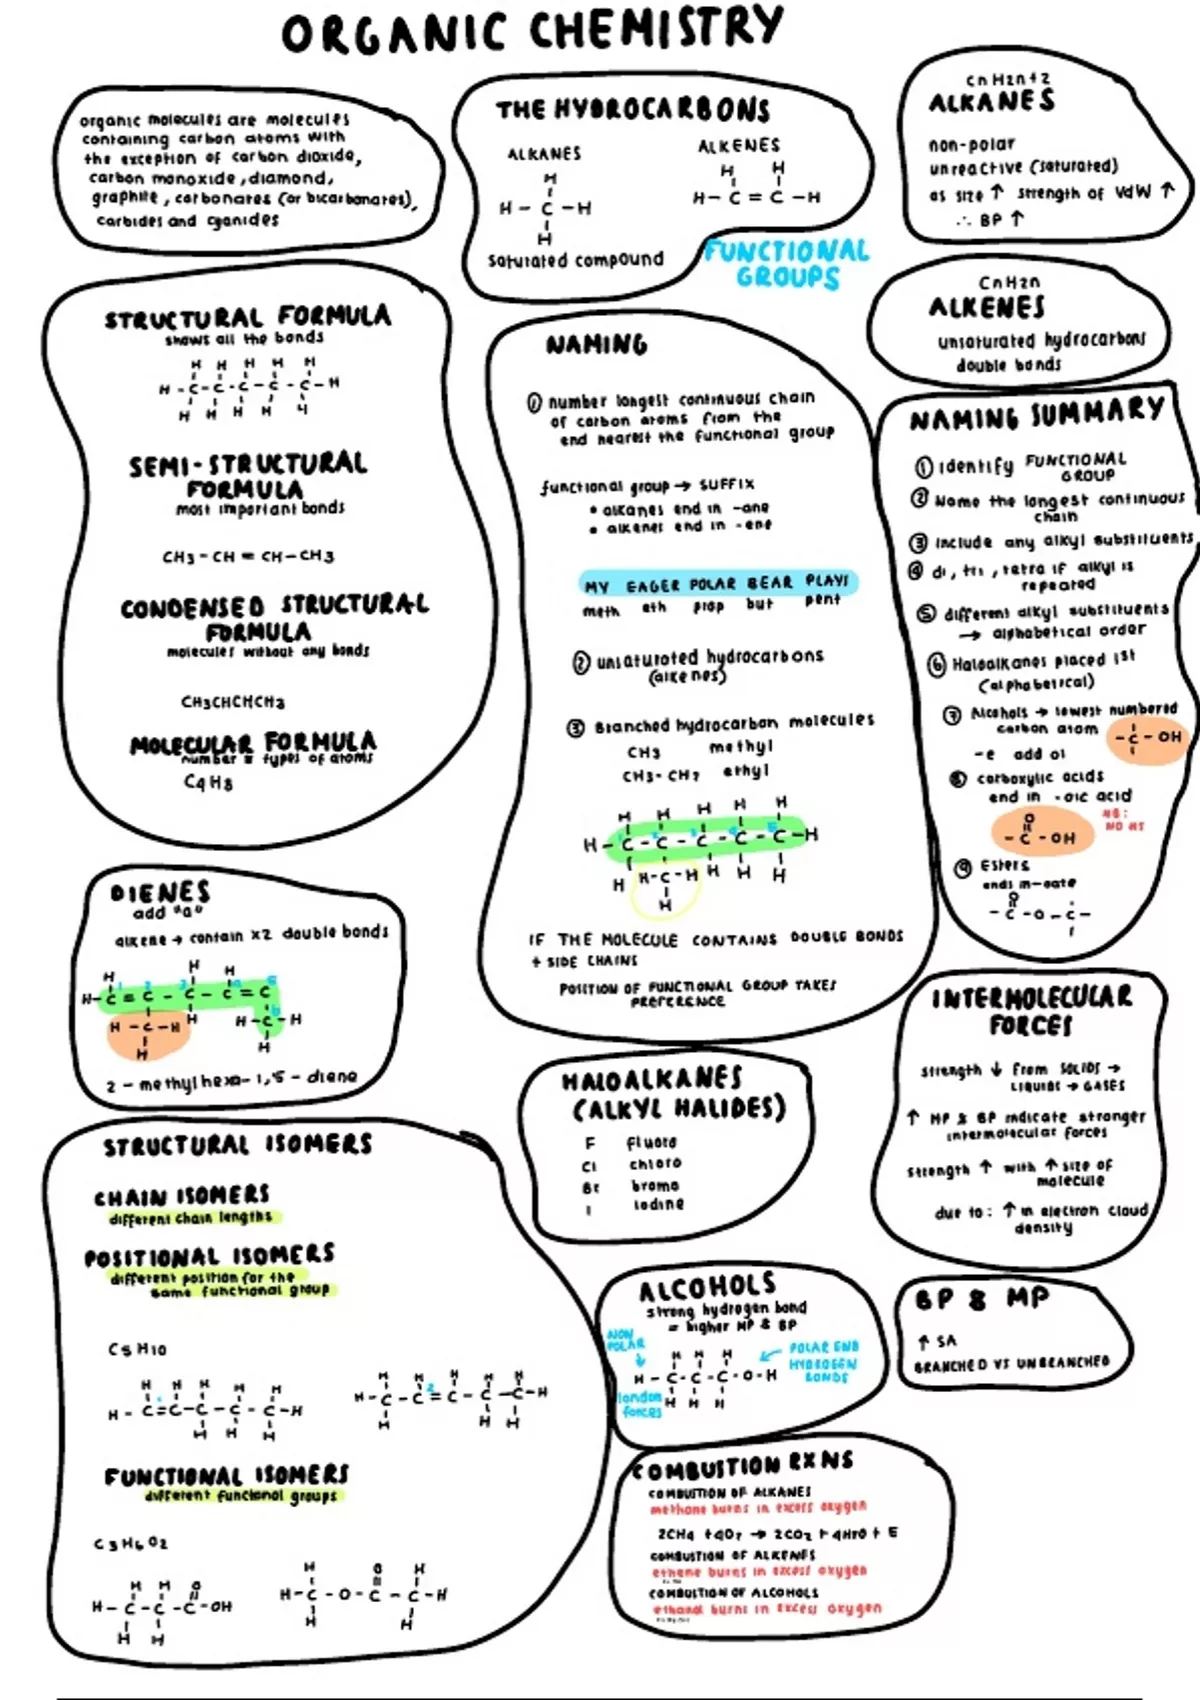 ORGANIC CHEMISTRY
organic molecules are molecules
containing carbon atoms with
the exception of carbon dioxide,
carbon monoxide, diamond,
graphite, carbonates (or bicarbonates),
carbides and cyanides
THE HYDROCARBONS
ALKANES
H
H - C - H
H
saturated compound
ALKENES
H H
H - C = C - H
FUNCTIONAL
GROUPS
CnH2n+2
ALKANES
non-polar
unreactive (saturated)
as size ↑ strength of VdW ↑
∴ BP ↑
CnH2n
ALKENES
unsaturated hydrocarbons
double bonds
STRUCTURAL FORMULA
shows all the bonds
H H H H H
H - C - C - C - C - C - H
H H H H H
SEMI-STRUCTURAL
FORMULA
most important bonds
CH3 - CH = CH - CH3
CONDENSED STRUCTURAL
FORMULA
molecules without any bonds
CH3CHCHCH3
MOLECULAR FORMULA
number & types of atoms
C4H8
NAMING
① number longest continuous chain
of carbon atoms from the
end nearest the functional group
functional group → SUFFIX
• alkanes end in -ane
• alkenes end in -ene
MY EAGER POLAR BEAR PLAYS
meth eth prop but pent
② unsaturated hydrocarbons
(alkenes)
③ Branched hydrocarbon molecules
CH3 methyl
CH3-CH2 ethyl
H H H H H
1 2 3 4 5
H - C - C - C - C - C - H
H H-C-H H H H
H
IF THE MOLECULE CONTAINS DOUBLE BONDS
+ SIDE CHAINS
POSITION OF FUNCTIONAL GROUP TAKES
PREFERENCE
NAMING SUMMARY
① identify FUNCTIONAL
GROUP
② Name the longest continuous
chain
③ include any alkyl substituents
④ di, tri, tetra if alkyl is
repeated
⑤ different alkyl substituents
→ alphabetical order
⑥ Haloalkanes placed 1st
(alphabetical)
⑦ Alcohols → lowest numbered
carbon atom
- C - OH
-e add ol
⑧ carboxylic acids
end in -oic acid
O
- C - OH
NB:
NO NS
⑨ Esters
ends in-oate
O
- C - O - C -
DIENES
add "a"
alkene → contain x2 double bonds
H H H
1 2 3 4 5
H - C = C - C - C = C
H - C - H H H - C - H
6
H H
2 - methylhexa - 1,5 - diene
STRUCTURAL ISOMERS
CHAIN ISOMERS
different chain lengths
POSITIONAL ISOMERS
different position for the
same functional group
C5H10
H H H H H
H - C = C - C - C - C - H
H H H
H H H H H
2
H - C - C = C - C - C - H
H H H
FUNCTIONAL ISOMERS
different functional groups
C3H6O2
H H O
H - C - C - C - OH
H H
H O H
H - C - O - C - C - H
H H
HALOALKANES
(ALKYL HALIDES)
F fluoro
Cl chloro
Br bromo
I iodine
INTERMOLECULAR
FORCES
strength ↓ from SOLIDS →
LIQUIDS → GASES
↑ MP & BP indicate stronger
intermolecular forces
strength ↑ with ↑ size of
molecule
due to: ↑ in electron cloud
density
ALCOHOLS
strong hydrogen bond
= higher MP & BP
NON
POLAR
H H H
H - C - C - C - O - H
H H H
london
forces
POLAR END
HYDROGEN
BONDS
BP & MP
↑ SA
BRANCHED VS UNBRANCHED
COMBUSTION RXNS
COMBUSTION OF ALKANES
methane burns in excess oxygen
2CH4 + 4O2 → 2CO2 + 4H2O + E
COMBUSTION OF ALKENES
ethene burns in excess oxygen
COMBUSTION OF ALCOHOLS
ethanol burns in excess oxygen